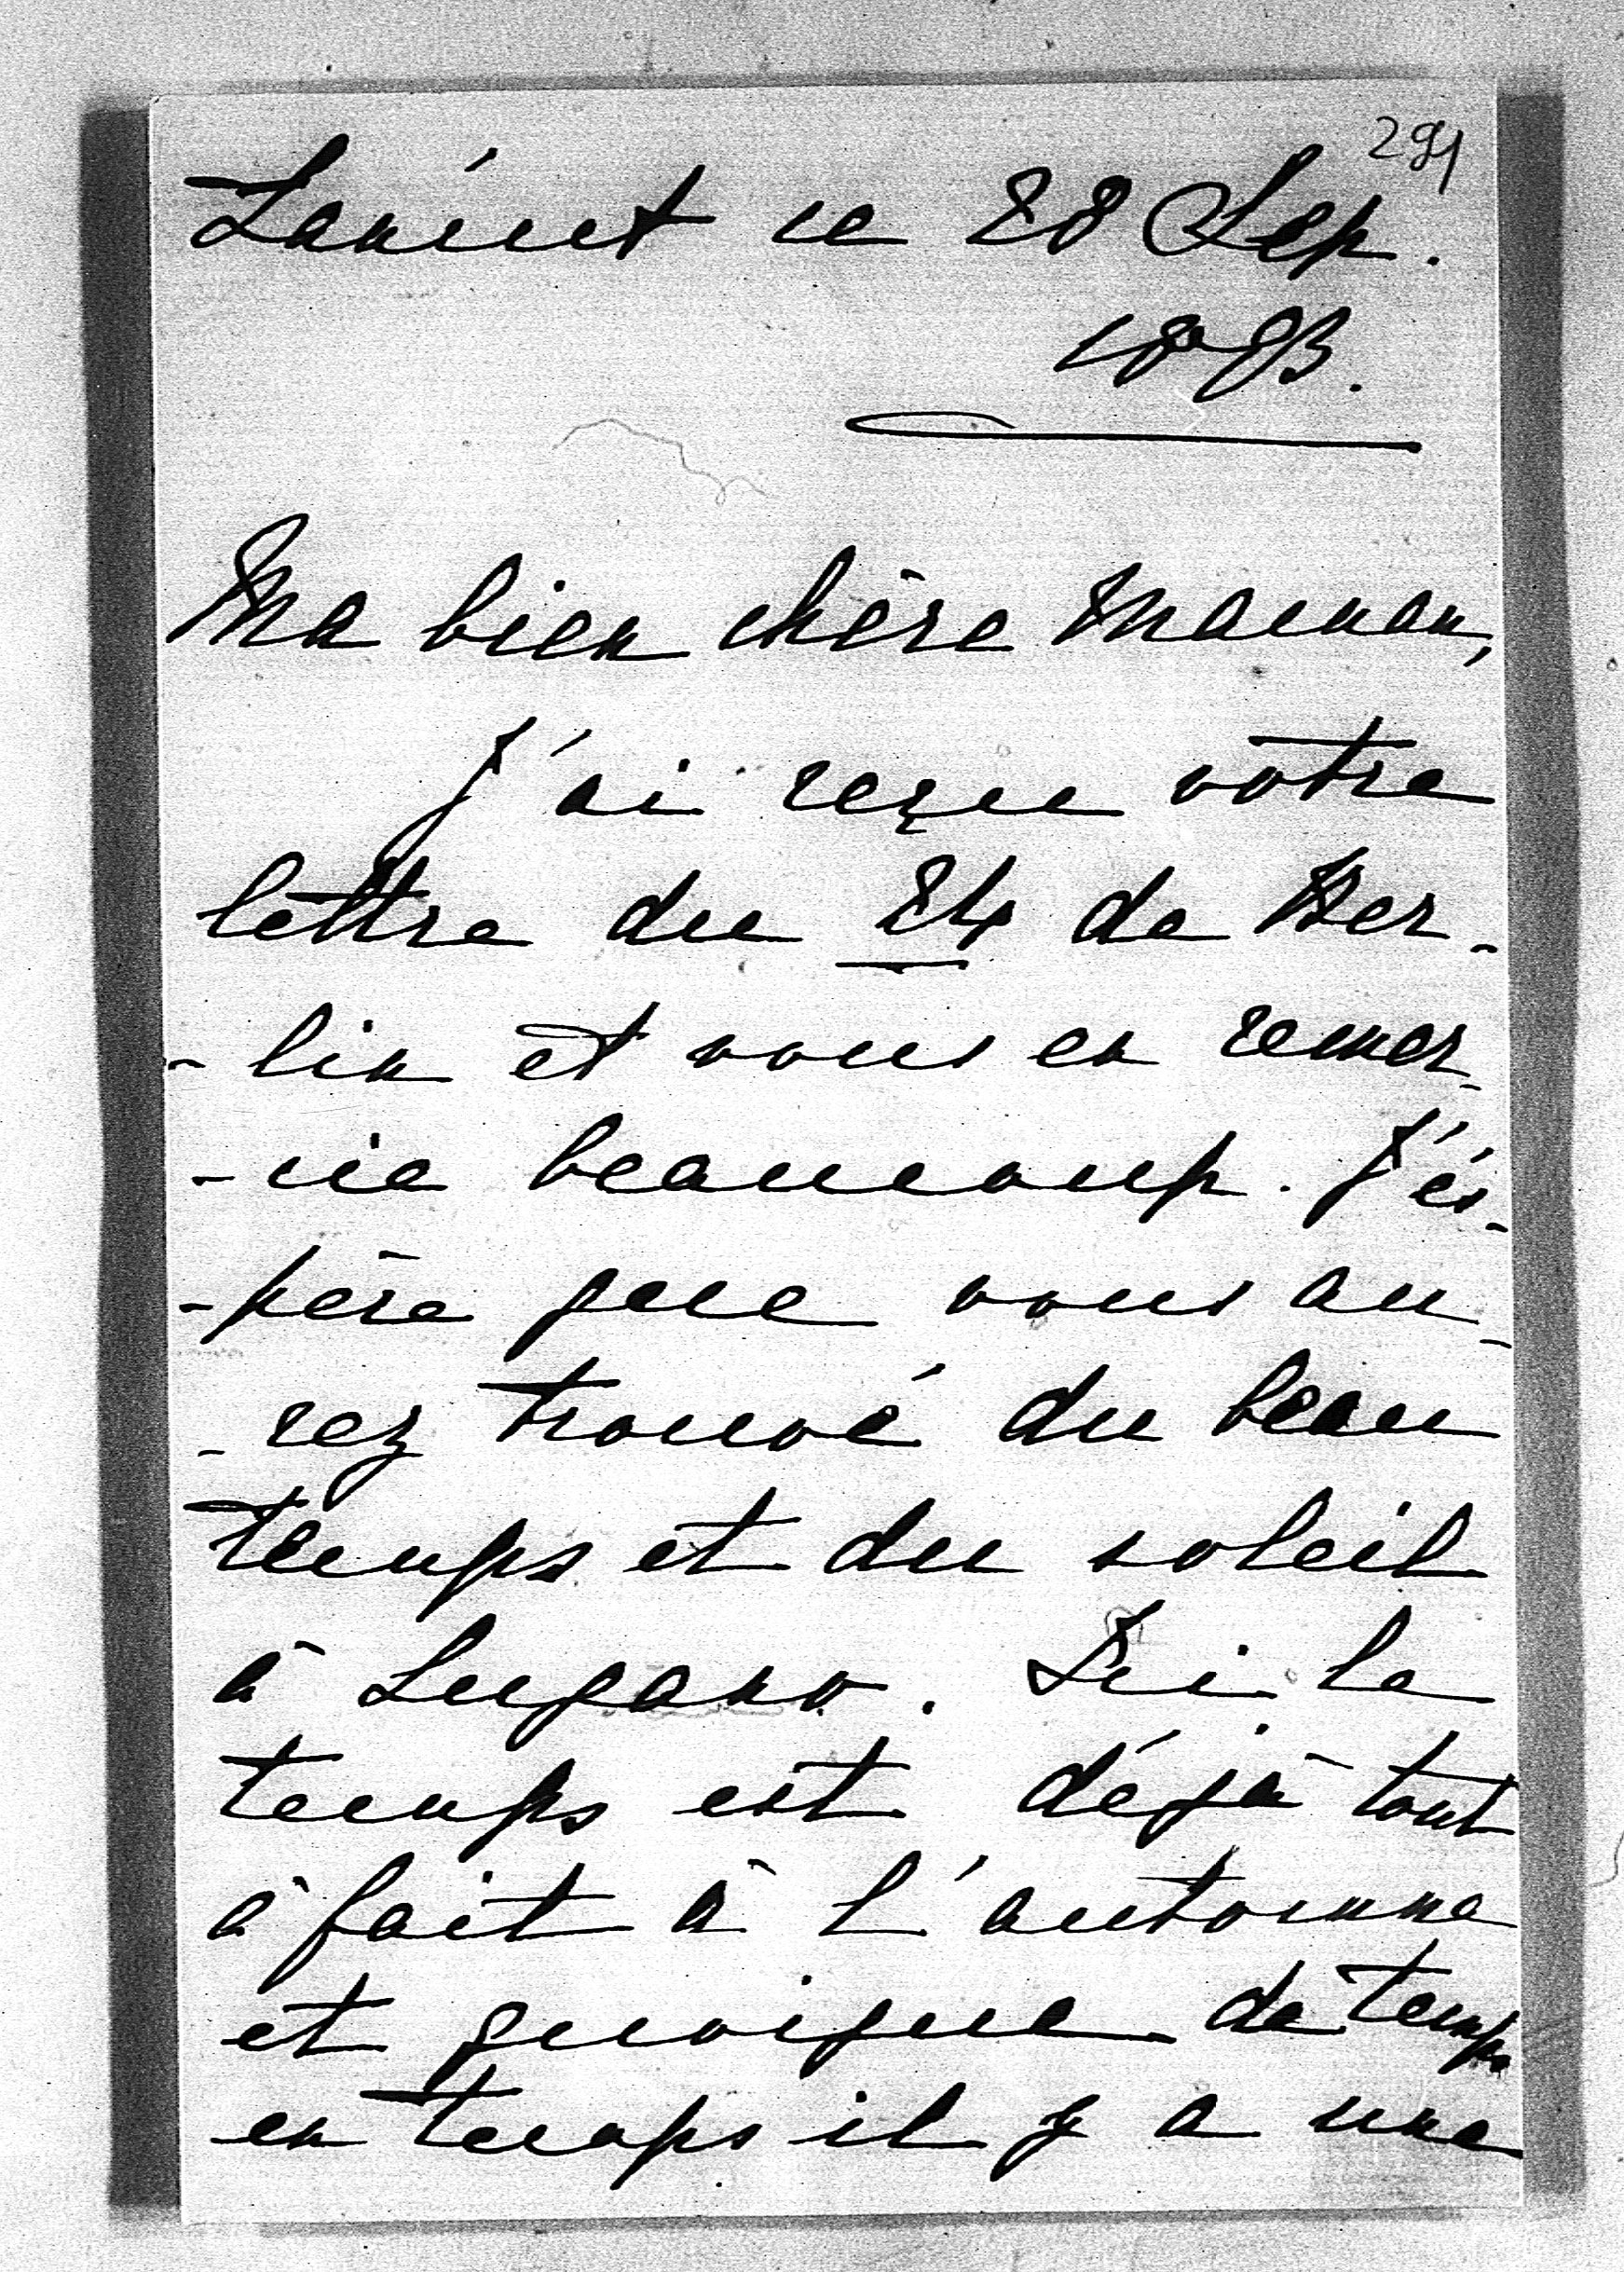 291
Lancut ce 28 Sep.
1893.
Ma bien chère Maman,
J'ai reçue votre
lettre du 24 de Ber-
-lin et vous en remer-
-cie beaucoup. J'és-
-père que vous au-
-rez trouvé du beau
temps et du soleil
à Lugano. Ici le
temps est déjà tout
à fait à l'automne
et quoique de temps
en temps il y a une